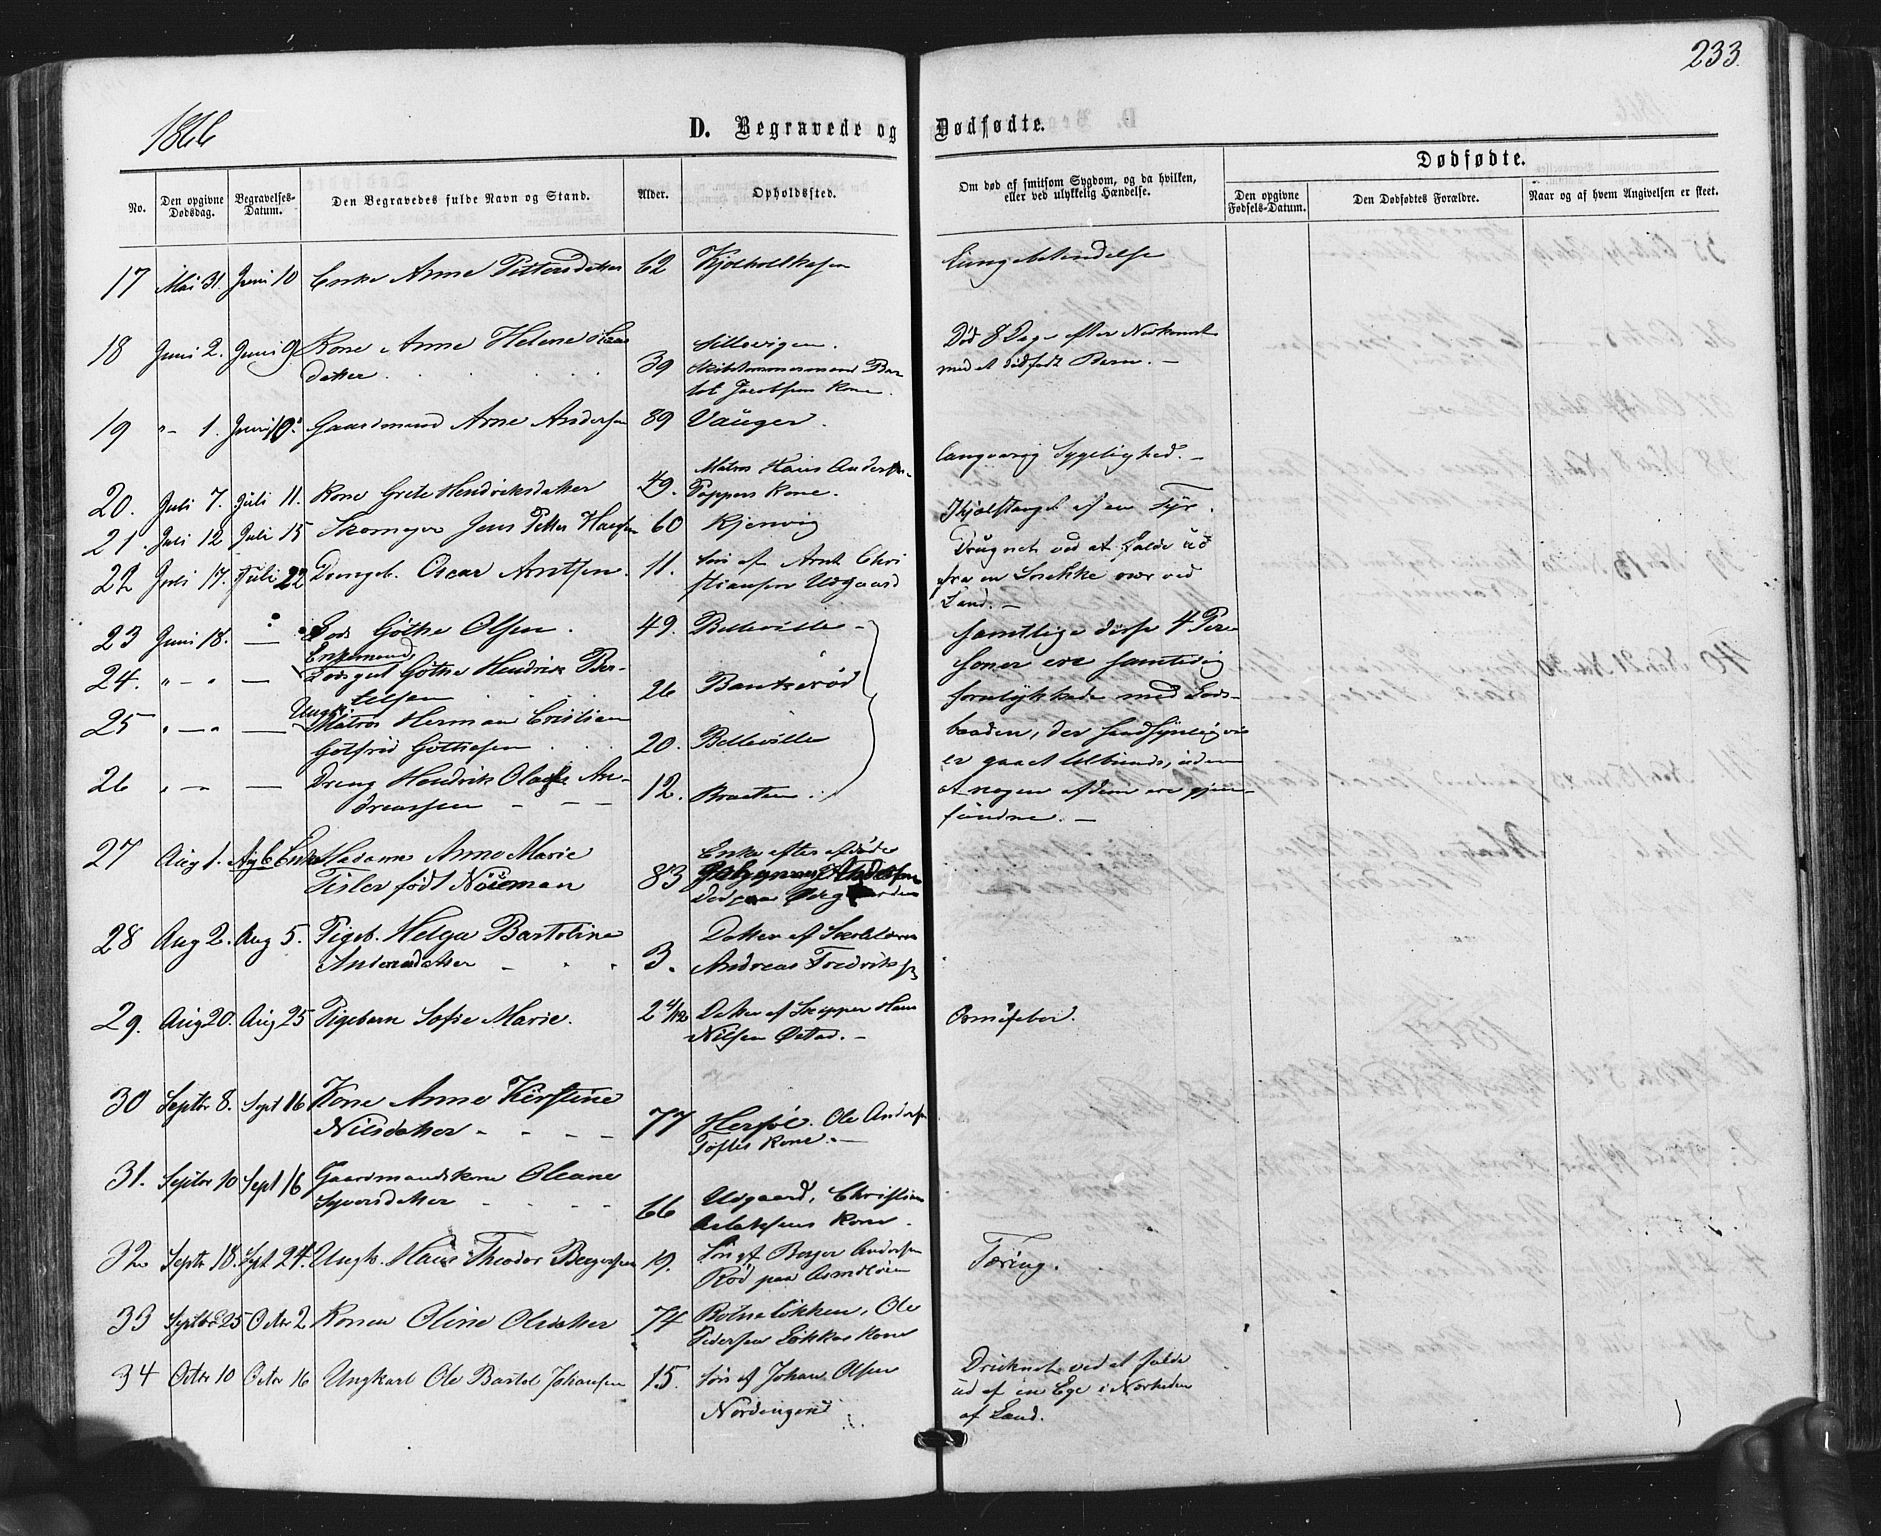 233.
1866
D. Begravede og Dødfødte.
No.
Den opgivne Dødsdag.
Begravelses-Datum.
Den Begravedes fulde Navn og Stand.
Alder.
Opholdssted.
Om død af smitsom Sygdom, og da hvilken,
eller ved ulykkelig Hændelse.
Dødfødte.
Den opgivne Fødsels-Datum.
Den Dødfødtes Forældre.
Naar og af hvem Angivelsen er skeet.
17 Mai 31. Juni 10 Enke Anne Pettersdatter 62
18 Juni 2. Juni 9. Kone Anne Helene
datter. 39
Død 8 Dage efter Nedkomst
med et dødfødt Barn. —
19 " – 1. Juni 10. Gaardmand Arne Andersen 89 Vauger.
Langvarig Sygelighed. —
20. Juli 7. Juli 11. Kone Grete Hendriksdatter 49. Matros Hans Anders
Kone.
21. Juli 12 Juli 15 Jens Petter Hansen 60 Kjenvig
Ihjelstanget af en Tyr.
22 Juli 17. Juli 22 Drengeb. Oscar Arntsen. 11. Søn af Arnt Chri
stiansen Udgaard
Druknet ved at falde ud
fra en Snekke nær ved
Land. —
23 Juni 18. — Lods Gøthe Olsen. 49. Belleville —
24. " – " — Enkemand
Gøthe Hendrik Ber-
telsen 26
25 " – " — Ungk.
Matros Herman Cristian
Gotfrid Gøthesen. 20. Belleville
26 " – — Dreng Hendrik An-
dreassen 12. Braaten.
Samtlige disse 4 Per-
soner ere samtidig
forulykkede med Lods-
baaden, der sandsynligvis
er gaaet tilbunds, uden
at nogen af dem ere gjen-
fundne. —
27 Aug 1. Aug 6 Enke Madame Anne Marie
Tisler født 83 Enke efter afdøde
28 Aug 2. Aug 5. Pigeb. Helga Bartoline
3. Datter af
Andreas Fredriks
29. Aug 20. Aug 25 Pigebarn Sofie Marie. 2 4/12 Datter af Skipper Hans
Nilsen Østad. —
Ormefeber.
30 Septbr 8. Sept 16 Kone Anne Kirstine
Nilsdatter 77 Herføl. Ole Anders
Toftes Kone. —
31. Septbr 10 Sept 16 Gaardmandskone Oleane
Syversdatter 66 Udgaard, Christian
Kone.
32 Septr 18. Sept 24. Ungk. Hans Theodor Bergersen 19. Søn af Berger Andersen
Rød paa Asmaløen
Tæring.
33 Septbr 25 Octbr 2 Konen Oline Olsdatter 74 Ole
Pedersen Løkkes Kone
34 Octbr 10 Octbr 16 Ungkarl Ole Bartol Johansen 15. Søn af Johan Olsen
Nordengen
Druknet ved at falde
ud af en Ege i Nærheden
af Land.